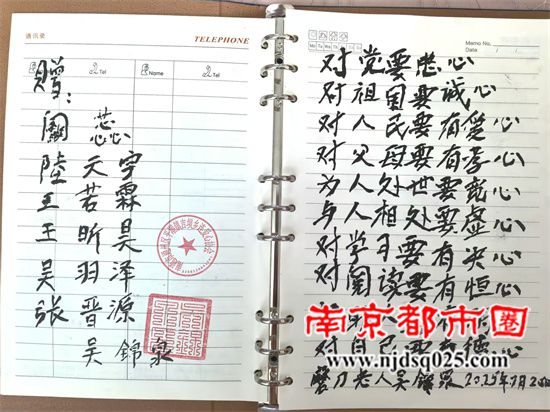 通讯录
TELEPHONE
Tel
Name
Tel
赠:
陆天宇
王若霖
王昕昊
吴羽泽
张晋源
吴锦泉
Memo No.
Mo Tu We Th Fr Sa Su
Date
对党要忠心
对祖国要诚心
对人民要有爱心
对父母要有孝心
为人处世要宽心
与人相处要虚心
对学习要有决心
对阅读要有恒心
南京都市圈
www.njdsq025.com
对自己要有 心
磨刀老人吴锦泉 2025年1月2